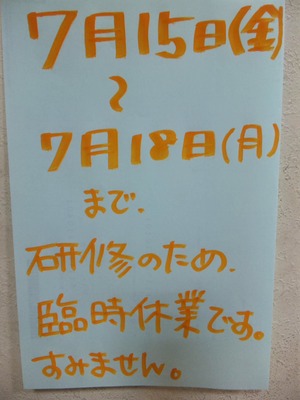 7月15日(金)
〜
7月18日(月)
まで.
研修のため.
臨時休業です。
すみません。